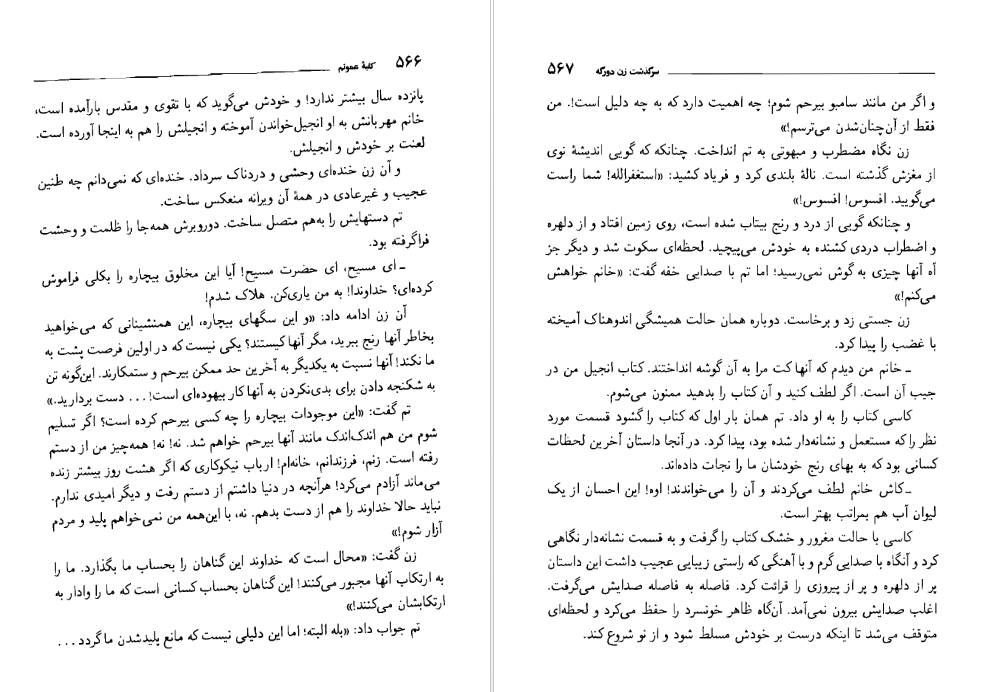 ۵۶۶ کلبهٔ عموتم
پانزده سال بیشتر ندارد! و خودش می‌گوید که با تقوی و مقدس بارآمده است،
خانم مهربانش به او انجیل‌خواندن آموخته و انجیلش را هم به اینجا آورده است.
لعنت بر خودش و انجیلش.
و آن زن خنده‌ای وحشی و دردناک سرداد. خنده‌ای که نمی‌دانم چه طنین
عجیب و غیرعادی در همهٔ آن ویرانه منعکس ساخت.
تم دستهایش را به‌هم متصل ساخت. دوروبرش همه‌جا را ظلمت و وحشت
فراگرفته بود.
ـ ای مسیح، ای حضرت مسیح! آیا این مخلوق بیچاره را بکلی فراموش
کرده‌ای؟ خداوندا! به من یاری‌کن. هلاک شدم!
آن زن ادامه داد: «و این سگهای بیچاره، این همنشینانی که می‌خواهید
بخاطر آنها رنج ببرید، مگر آنها کیستند؟ یکی نیست که در اولین فرصت پشت به
ما نکند! آنها نسبت به یکدیگر به آخرین حد ممکن بیرحم و ستمکارند. این‌گونه تن
به شکنجه دادن برای بدی‌نکردن به آنها کار بیهوده‌ای است! ... دست بردارید.»
تم گفت: «این موجودات بیچاره را چه کسی بیرحم کرده است؟ اگر تسلیم
شوم من هم اندک‌اندک مانند آنها بیرحم خواهم شد. نه! نه! همه‌چیز من از دستم
رفته است. زنم، فرزندانم، خانه‌ام! ارباب نیکوکاری که اگر هشت روز بیشتر زنده
می‌ماند آزادم می‌کرد! هرآنچه در دنیا داشتم از دستم رفت و دیگر امیدی ندارم.
نباید حالا خداوند را هم از دست بدهم. نه، با این‌همه من نمی‌خواهم پلید و مردم
آزار شوم!»
زن گفت: «محال است که خداوند این گناهان را بحساب ما بگذارد. ما را
به ارتکاب آنها مجبور می‌کنند! این گناهان بحساب کسانی است که ما را وادار به
ارتکابشان می‌کنند!»
تم جواب داد: «بله البته؛ اما این دلیلی نیست که مانع پلیدشدن ما گردد ...
سرگذشت زن دورگه ۵۶۷
و اگر من مانند سامبو بیرحم شوم؛ چه اهمیت دارد که به چه دلیل است!. من
فقط از آن‌چنان‌شدن می‌ترسم!»
زن نگاه مضطرب و مبهوتی به تم انداخت. چنانکه که گویی اندیشهٔ نوی
از مغزش گذشته است. نالهٔ بلندی کرد و فریاد کشید: «استغفرالله! شما راست
می‌گویید. افسوس! افسوس!»
و چنانکه گویی از درد و رنج بیتاب شده است، روی زمین افتاد و از دلهره
و اضطراب دردی کشنده به خودش می‌پیچید. لحظه‌ای سکوت شد و دیگر جز
آه آنها چیزی به گوش نمی‌رسید؛ اما تم با صدایی خفه گفت: «خانم خواهش
می‌کنم!»
زن جستی زد و برخاست. دوباره همان حالت همیشگی اندوهناک آمیخته
با غضب را پیدا کرد.
ـ خانم من دیدم که آنها کت مرا به آن گوشه انداختند. کتاب انجیل من در
جیب آن است. اگر لطف کنید و آن کتاب را بدهید ممنون می‌شوم.
کاسی کتاب را به او داد. تم همان بار اول که کتاب را گشود قسمت مورد
نظر را که مستعمل و نشانه‌دار شده بود، پیدا کرد. در آنجا داستان آخرین لحظات
کسانی بود که به بهای رنج خودشان ما را نجات داده‌اند.
ـ کاش خانم لطف می‌کردند و آن را می‌خواندند! اوه! این احسان از یک
لیوان آب هم بمراتب بهتر است.
کاسی با حالت مغرور و خشک کتاب را گرفت و به قسمت نشانه‌دار نگاهی
کرد و آنگاه با صدایی گرم و با آهنگی که راستی زیبایی عجیب داشت این داستان
پر از دلهره و پر از پیروزی را قرائت کرد. فاصله به فاصله صدایش می‌گرفت.
اغلب صدایش بیرون نمی‌آمد. آن‌گاه ظاهر خونسرد را حفظ می‌کرد و لحظه‌ای
متوقف می‌شد تا اینکه درست بر خودش مسلط شود و از نو شروع کند.